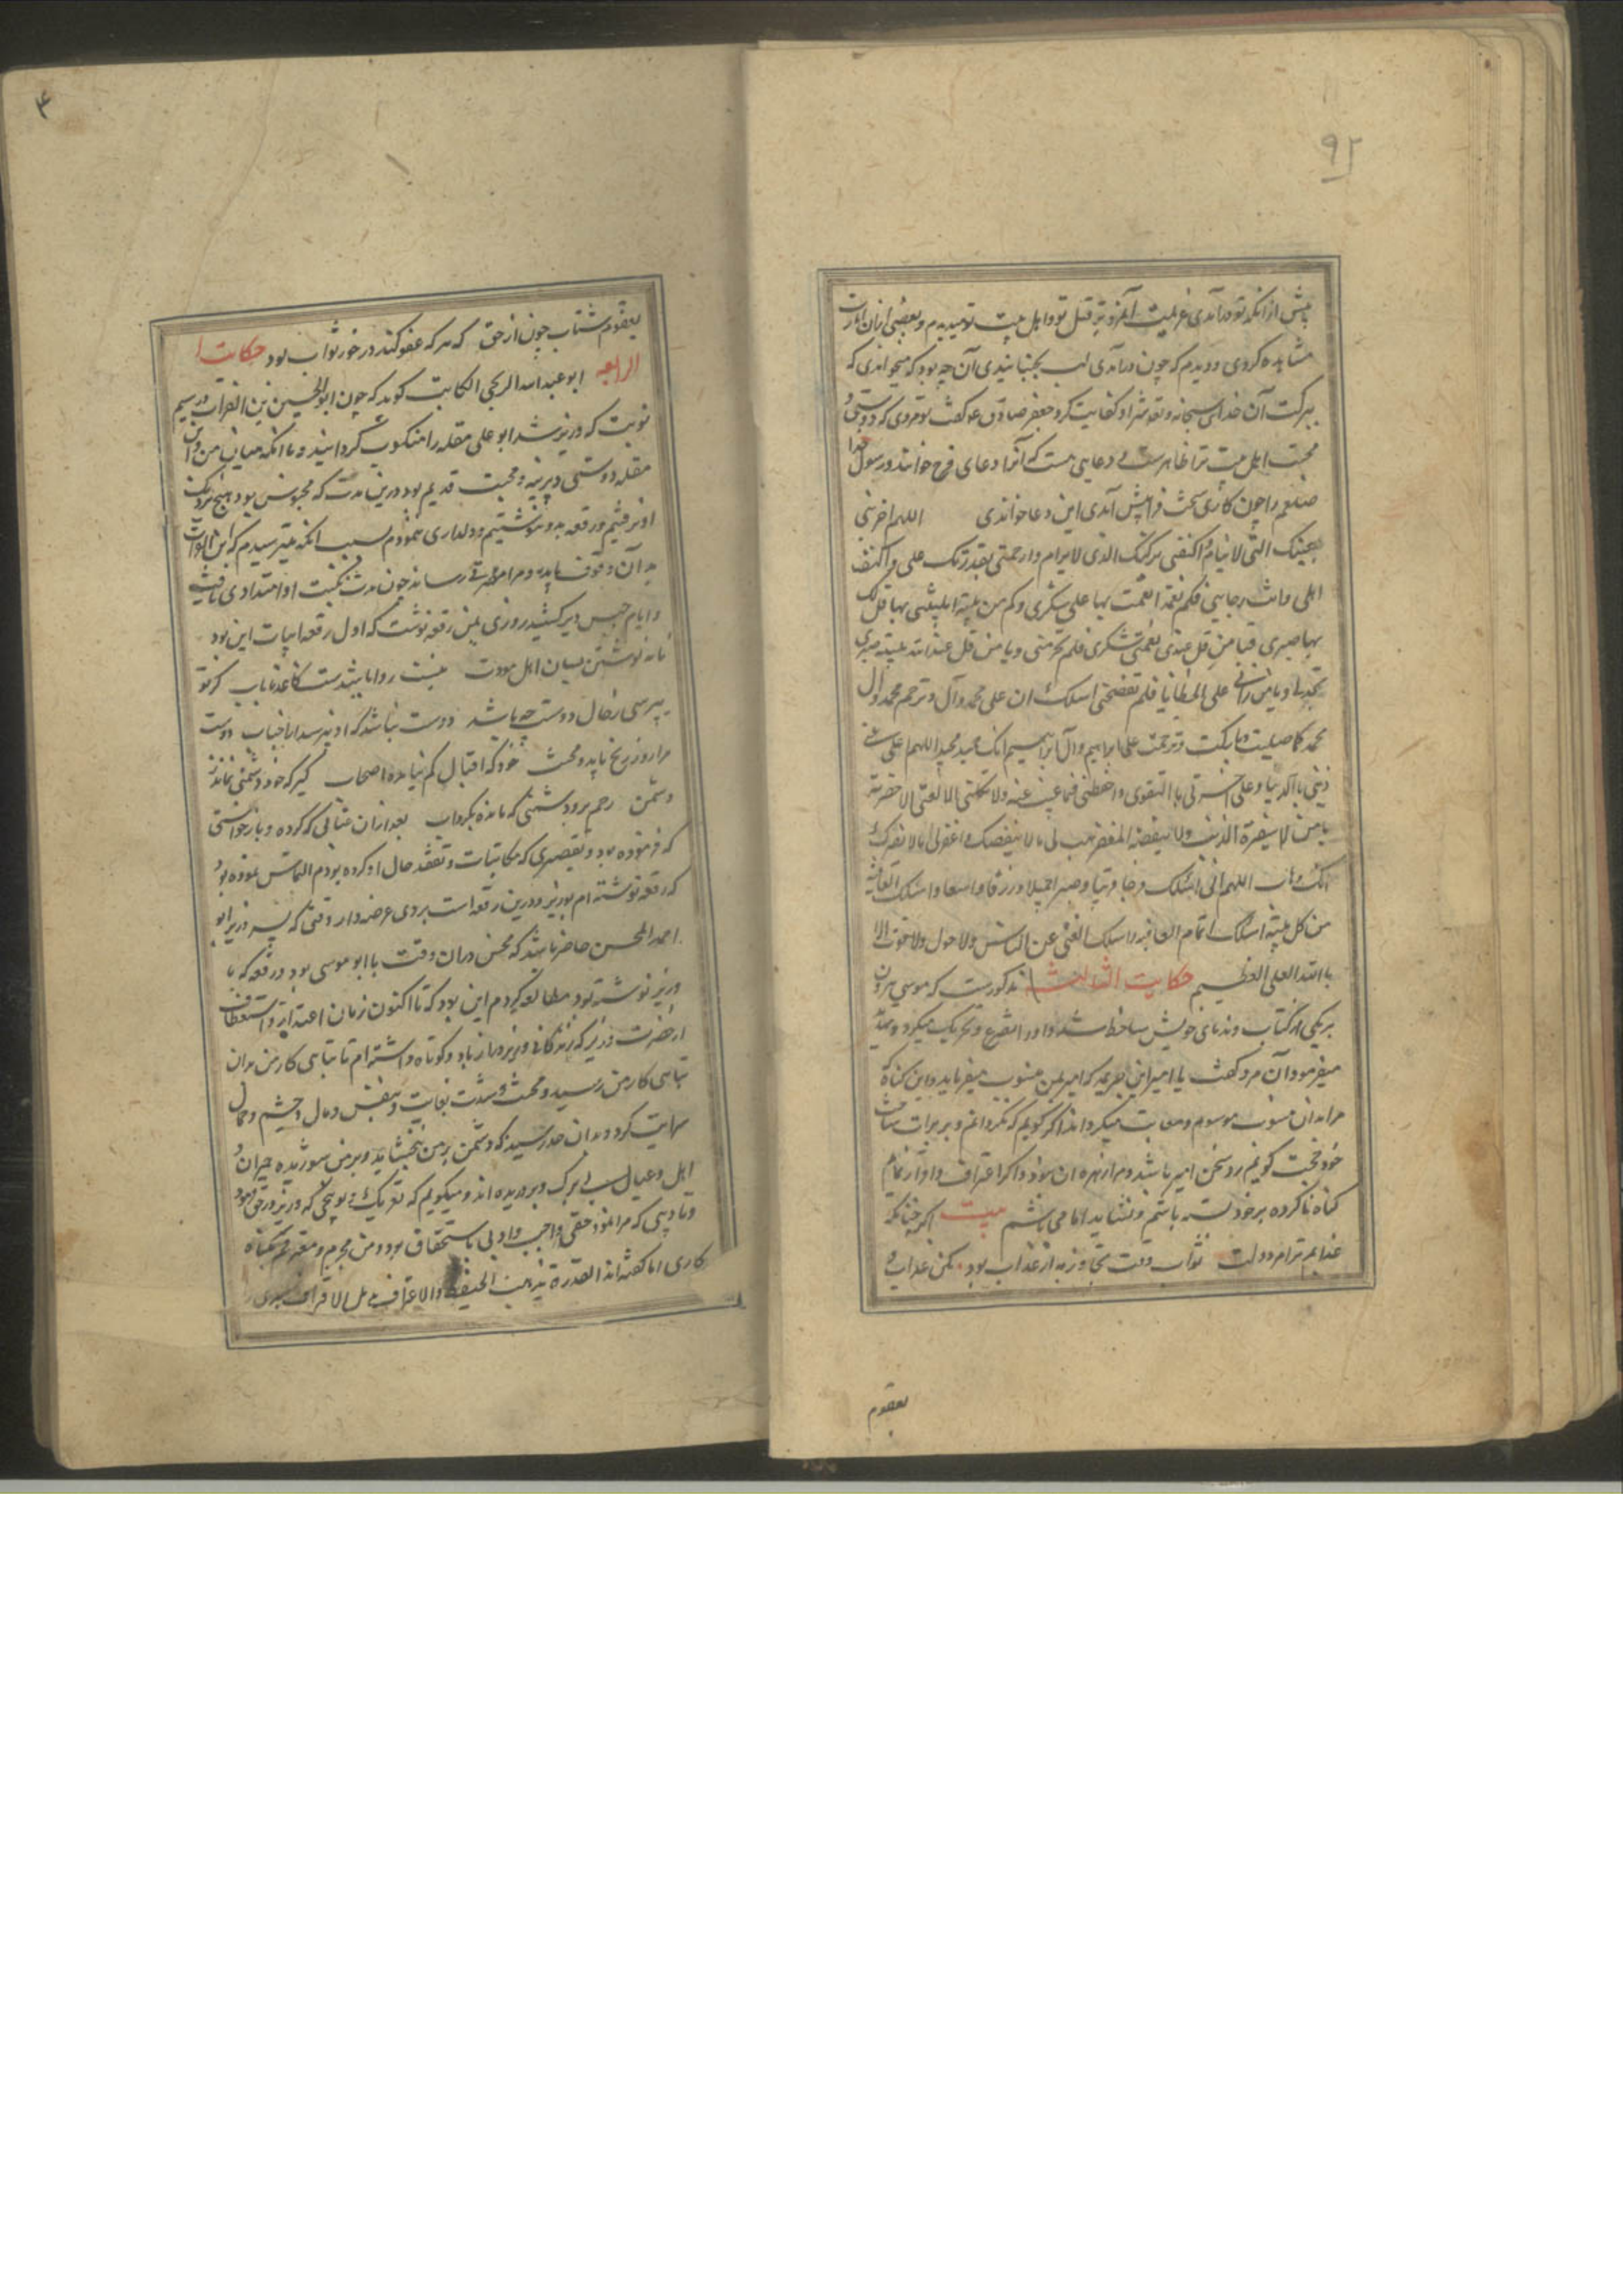 ۹۲
پیش از آنکه تو درآمدی عزیمت آتش قتل تو و اهل بیت تو میدیدم و بعضی ازان امارت
مشاهده کردی و دیدم که چون درآمدی لب بجنبانیدی آن چه بود که میخواندی که
ببرکت آن خدای سبحانه و تعه شر او کفایت کرد جعفر صادق ع گفت تو مردی که دوستی و
محبت اهل بیت ترا ظاهرست دعایی هست که آنرا دعای فرج خوانند و رسول خدا
صلعم را چون کاری سخت فرا پیش آمدی این دعا خواندی اللهم احرسنی
بعینک التی لا ینام و اکنفنی برکنک الذی لا یرام وارحمنی بقدرتک علی
اهلی وانت رجایی فکم نعمة انعمت بها علی شکری وکم من بلیة ابلیتنی بها قل لک
بها صبری فیا من قل عندی نعمته شکری فلم تحرمنی ویا من قل عند بلیته صبری
ویا من رانی علی الخطایا فلم تفضحنی اسلک ان علی محمد وآل وترحم محمد وآل
محمد کما صلیت وبارکت وترحمت علی ابراهیم وآل ابراهیم انک حمید مجید اللهم اعنی علی
دینی بالدنیا وعلی آخرتی بالتقوی واحفظنی فیما غبت عنه ولا تکلنی الی نفسی
یا من لا یضره الذنب ولا ینقصه المغفرة هب لی ما لا ینقصک واغفر لی ما لا یضرک
انک وهاب اللهم انی اسئلک فرجا قریبا وصبرا جمیلا ورزقا واسعا واسئلک العافیة
من کل بلیة اسئلک اتمام العافیة واسئلک الغنی عن الناس ولا حول ولا قوة الا
بالله العلی العظیم حکایت الثالث مذکورست که موسی هرون
بریکی از کتاب و ندمای خویش ساخط شد و او را تقریع و تحریک میکرد و تهدید
میفرمود آن مرد گفت یا امیر این جریمه که امیر بمن منسوب میفرماید و این گناه که
مرا بدان منسوب و موسوم و معاتب میگرداند اگر گویم که نکرده‌ام و بر برات ساحت
خود حجت گویم رد سخن امیر باشد و مرا زهره آن نبود و اگر اعتراف و اقرار نمایم
گناه ناکرده بر خود بسته باشم و نشاید اما می باشم بیت اگر چنانکه
عذابم ترام دولت ثواب وقت تجاوز به از عذاب بود مکن عذاب و
بعقوم
۴
بعقوم شتاب چون از حق که هر که عفو کند در خور ثواب بود حکایت ا
الرابعه ابو عبد الله الریحی الکاتب گوید که چون ابو الحسین بن الفرات در سیم
نوبت که وزیر شد ابو علی مقله را منکوب گردانید و با آنکه میان من و ابن
مقله دوستی دیرینه و محبت قدیم بود درین مدت که محبوس بود هیچ نزدیک
او نرفتیم و رقعه بدو ننوشتیم و دلداری ننمودم بسبب آنکه میترسیدم که ابن الفرات
بر آن وقوف یابد و مرا مضرتی رساند چون مدت نکبت او امتدادی یافت
و ایام حبس دیر کشید روزی بمن رقعه نوشت که اول رقعه ابیات این بود
نامه نوشتن میان اهل مودت نیست روا یا بشدست کاغذ نایاب گر تو
بپرسی ز حال دوست چه باشد دوست نباشد که او نپرسد از احباب دوست
مرا روز رنج باید و محنت خود که اقبال کم نیاید اصحاب گیر که خود دشمنی نماند
دشمن رحم برد دشمنی که مانده بگرداب بعد ازان عتابی که کرده و بازخواستی
که فرموده بود و تقصیری که مکاتبات و تفقد حال او کرده بودم التماس نموده بود
که رقعه نوشته‌ام بوزیر و درین رقعه است بروی عرضه دار وقتی که پسر وزیر ابو
احمد المحسن حاضر باشد که محسن دران وقت با ابو موسی بود و رقعه که با
وزیر نوشته بود مطالعه کردم این بود که تا اکنون زمان اعتذار و استعطاف
از حضرت وزیر که زندگانی وزیر دراز باد کوتاه داشته‌ام تا تباهی کار من بدان
تباهی کار من رسید و محنت و شدت بغایت و بنفس و مال و حشم و جمال
سرایت کرد و بدان حد رسید که دشمن بر من ببخشاید و بر من شوریده حیران و
اهل و عیال بی برگ و پروریده‌اند و میگویم که نزدیک و بوجهی که وزیر در حق من
و تادیبی که مرا نمود حقی واجب و ادبی باستحقاق بود و من مجرم و معترفم بگناه
کاری اما گفته‌اند القدرة تذهب الحفیظة والاعتراف